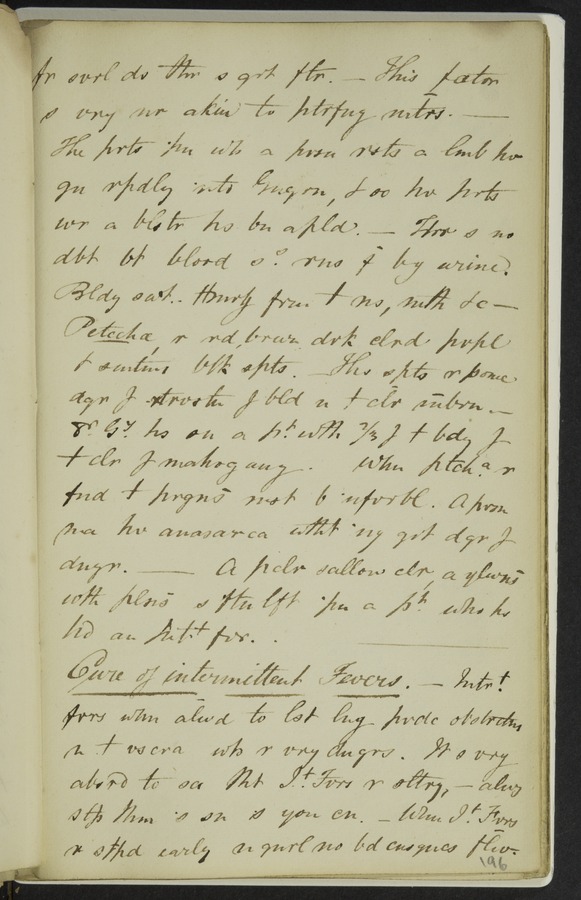 fr svrl ds thr s grt ftr. — This fœtor
s vry nr akin to ptrfug mtrs. —
The prts pn wh a prsn rsts a lmb hv
gn rpdly into Gngrn, & so hv prts
wr a blstr hs bn apld. — Thr s no
dbt bt blood s? rns f by urine.
Bldy swt. Hmrg frm t ns, mth &c —
Petecha, r rd, brwn drk clrd prpl
t smtms blk spts. — Ths spts r sm
dgr f xtrvstn f bld n t clr mbrn. —
Dr. Gy. hs sn a pt. wth 2/3 f t bdy f
t clr f mahogany. When ptcha r
fnd t prgns mst b unfvrbl. A prsn
ma hv anasarca wtht ny grt dgr f
dngr. — A pclr sallow clr, a ylwns
wth plns s ftn lft pn a pt. who hs
hd an Intt. fvr. .
Cure of intermittent Fevers. — Intrt.
fvrs whn alwd to lst lng prdc obstrctns
n t vscra wh r vry dngrs. It s vry
absrd to sa tht It. Fvrs r sltry, — alwys
stp thm s sn s you cn. — When It. Fvrs
r stpd early n gnrl no bd cnsqncs fllw-
196